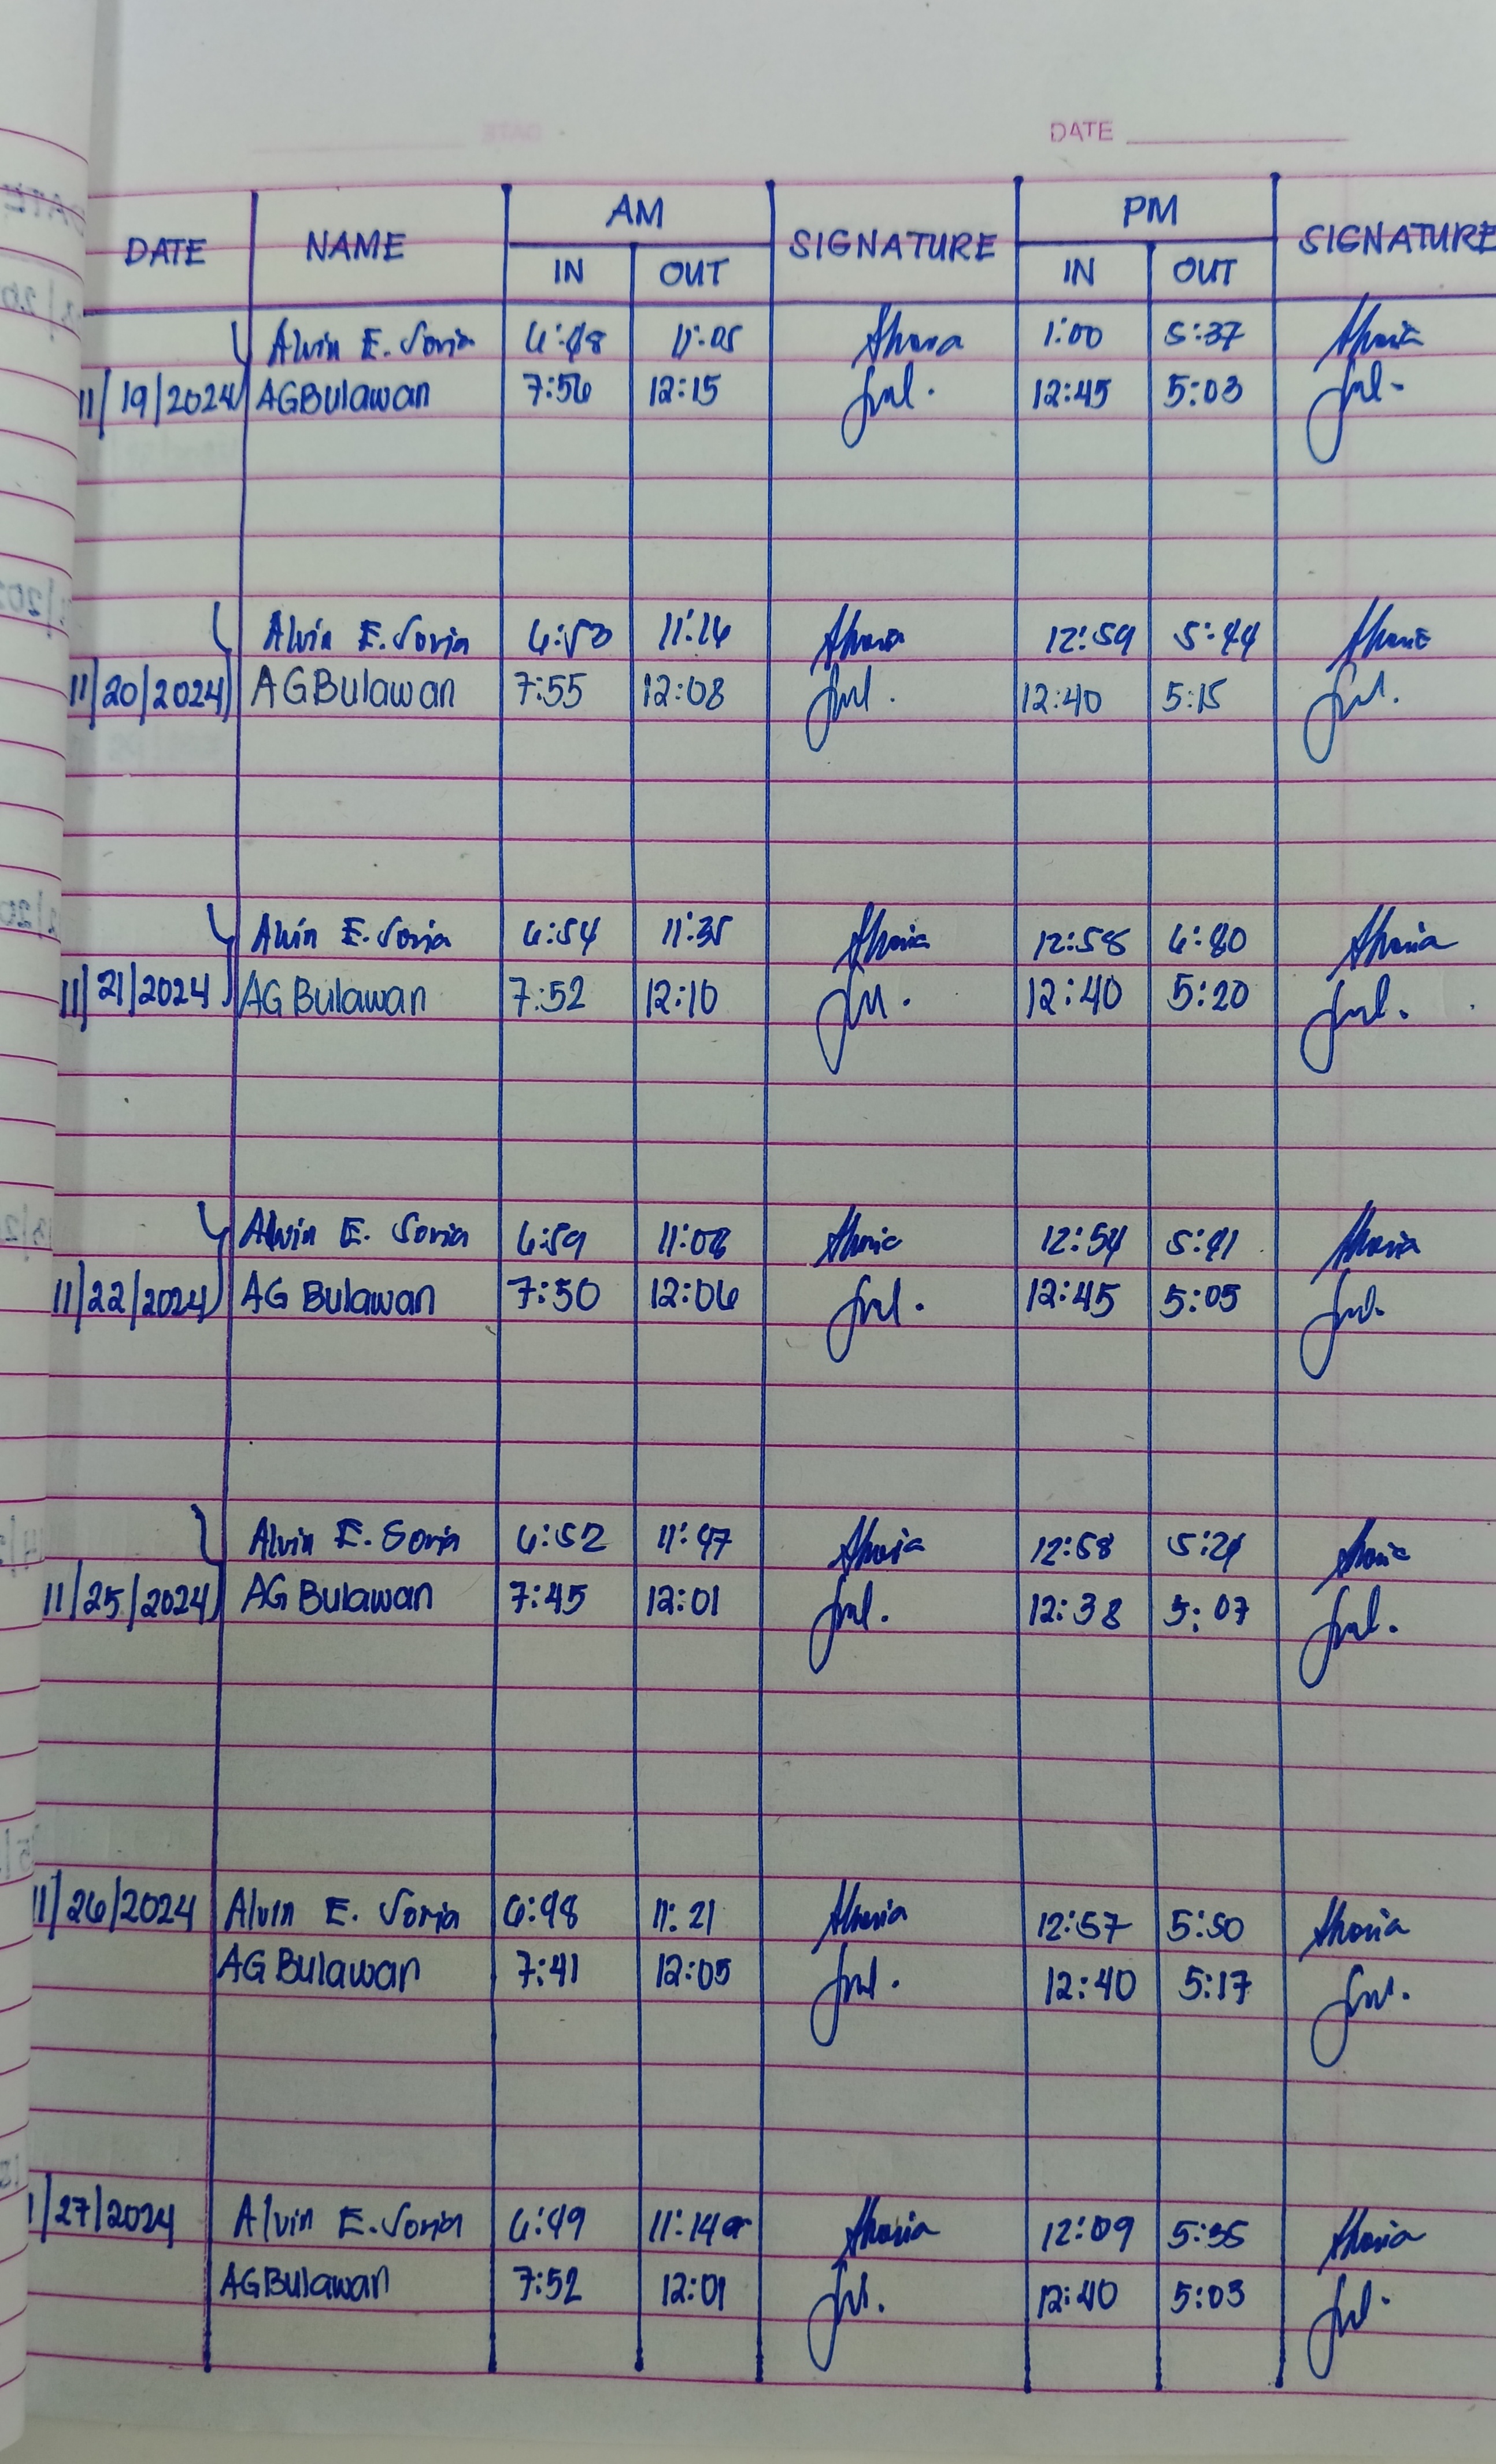 DATE
AM PM
DATE NAME SIGNATURE SIGNATURE
IN OUT IN OUT
Alvin E. Soria 6:48 11:05 1:00 5:37
11/19/2024 AGBulawan 7:56 12:15 12:45 5:03
Alvin E. Soria 6:53 11:16 12:59 5:44
11/20/2024 AGBulawan 7:55 12:08 12:40 5:15
Alvin E. Soria 6:54 11:35 12:58
11/21/2024 AG Bulawan 7:52 12:10 12:40 5:20
Alvin E. Soria 6:59 11:08 12:54 5:41
11/22/2024 AG Bulawan 7:50 12:06 12:45 5:05
Alvin E. Soria 6:52 11:47 12:58
11/25/2024 AG Bulawan 7:45 12:01 12:38 5:07
11/26/2024 Alvin E. Soria 6:48 11:21 12:57 5:50
AG Bulawan 7:41 12:05 12:40 5:17
1/27/2024 Alvin E. Soria 6:49 11:14 12:09 5:35
AGBulawan 7:52 12:01 12:40 5:03